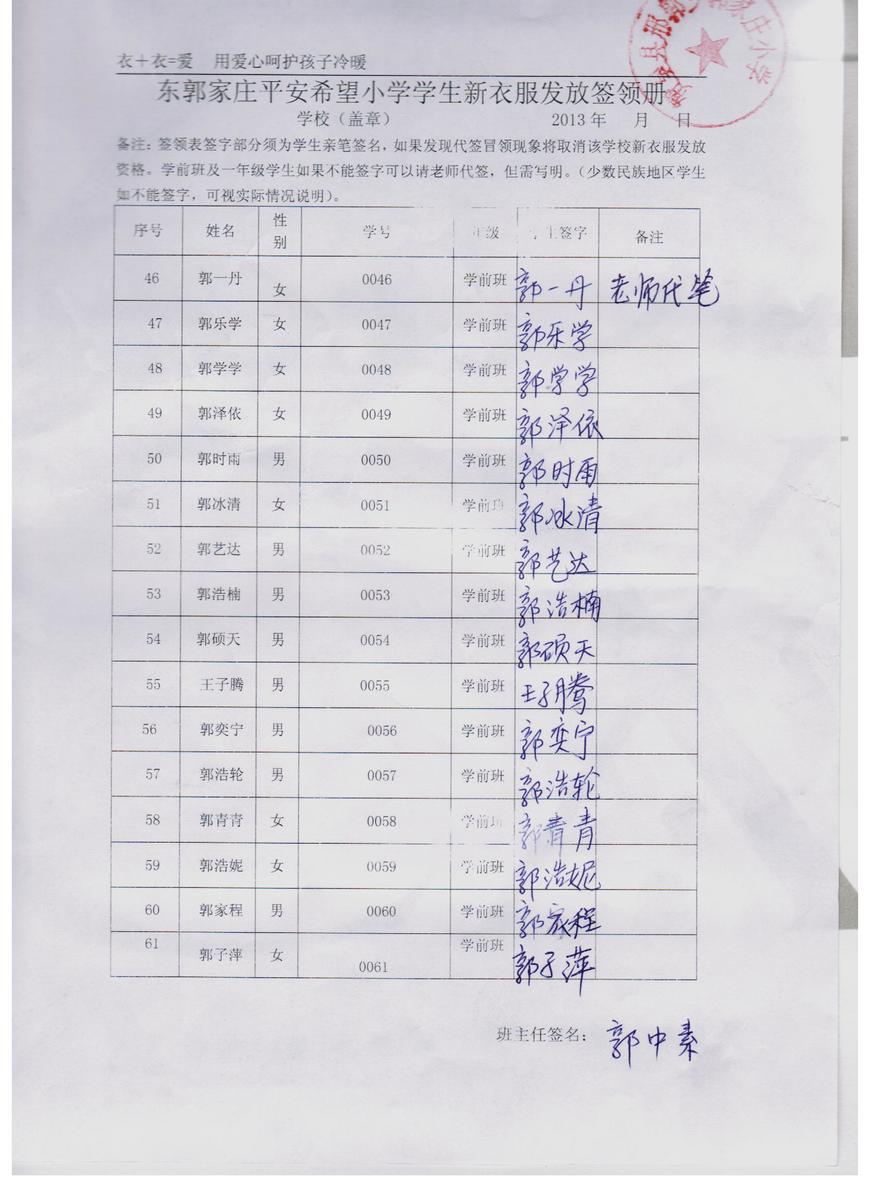 衣+衣=爱 用爱心呵护孩子冷暖
东郭家庄平安希望小学学生新衣服发放签领册
学校（盖章） 2013年 月 日
备注：签领表签字部分须为学生亲笔签名，如果发现代签冒领现象将取消该学校新衣服发放
资格。学前班及一年级学生如果不能签字可以请老师代签，但需写明。（少数民族地区学生
如不能签字，可视实际情况说明）。
序号 姓名 性别 学号 年级 学生签字 备注
46 郭一丹 女 0046 学前班 郭一丹 老师代笔
47 郭乐学 女 0047 学前班 郭乐学
48 郭学学 女 0048 学前班 郭学学
49 郭泽依 女 0049 学前班 郭泽依
50 郭时雨 男 0050 学前班 郭时雨
51 郭冰清 女 0051 学前班 郭冰清
52 郭艺达 男 0052 学前班 郭艺达
53 郭浩楠 男 0053 学前班 郭浩楠
54 郭硕天 男 0054 学前班 郭硕天
55 王子腾 男 0055 学前班 王子腾
56 郭奕宁 男 0056 学前班 郭奕宁
57 郭浩轮 男 0057 学前班 郭浩轮
58 郭青青 女 0058 学前班 郭青青
59 郭浩妮 女 0059 学前班 郭浩妮
60 郭家程 男 0060 学前班 郭家程
61 郭子萍 女 0061 学前班 郭子萍
班主任签名：郭中素